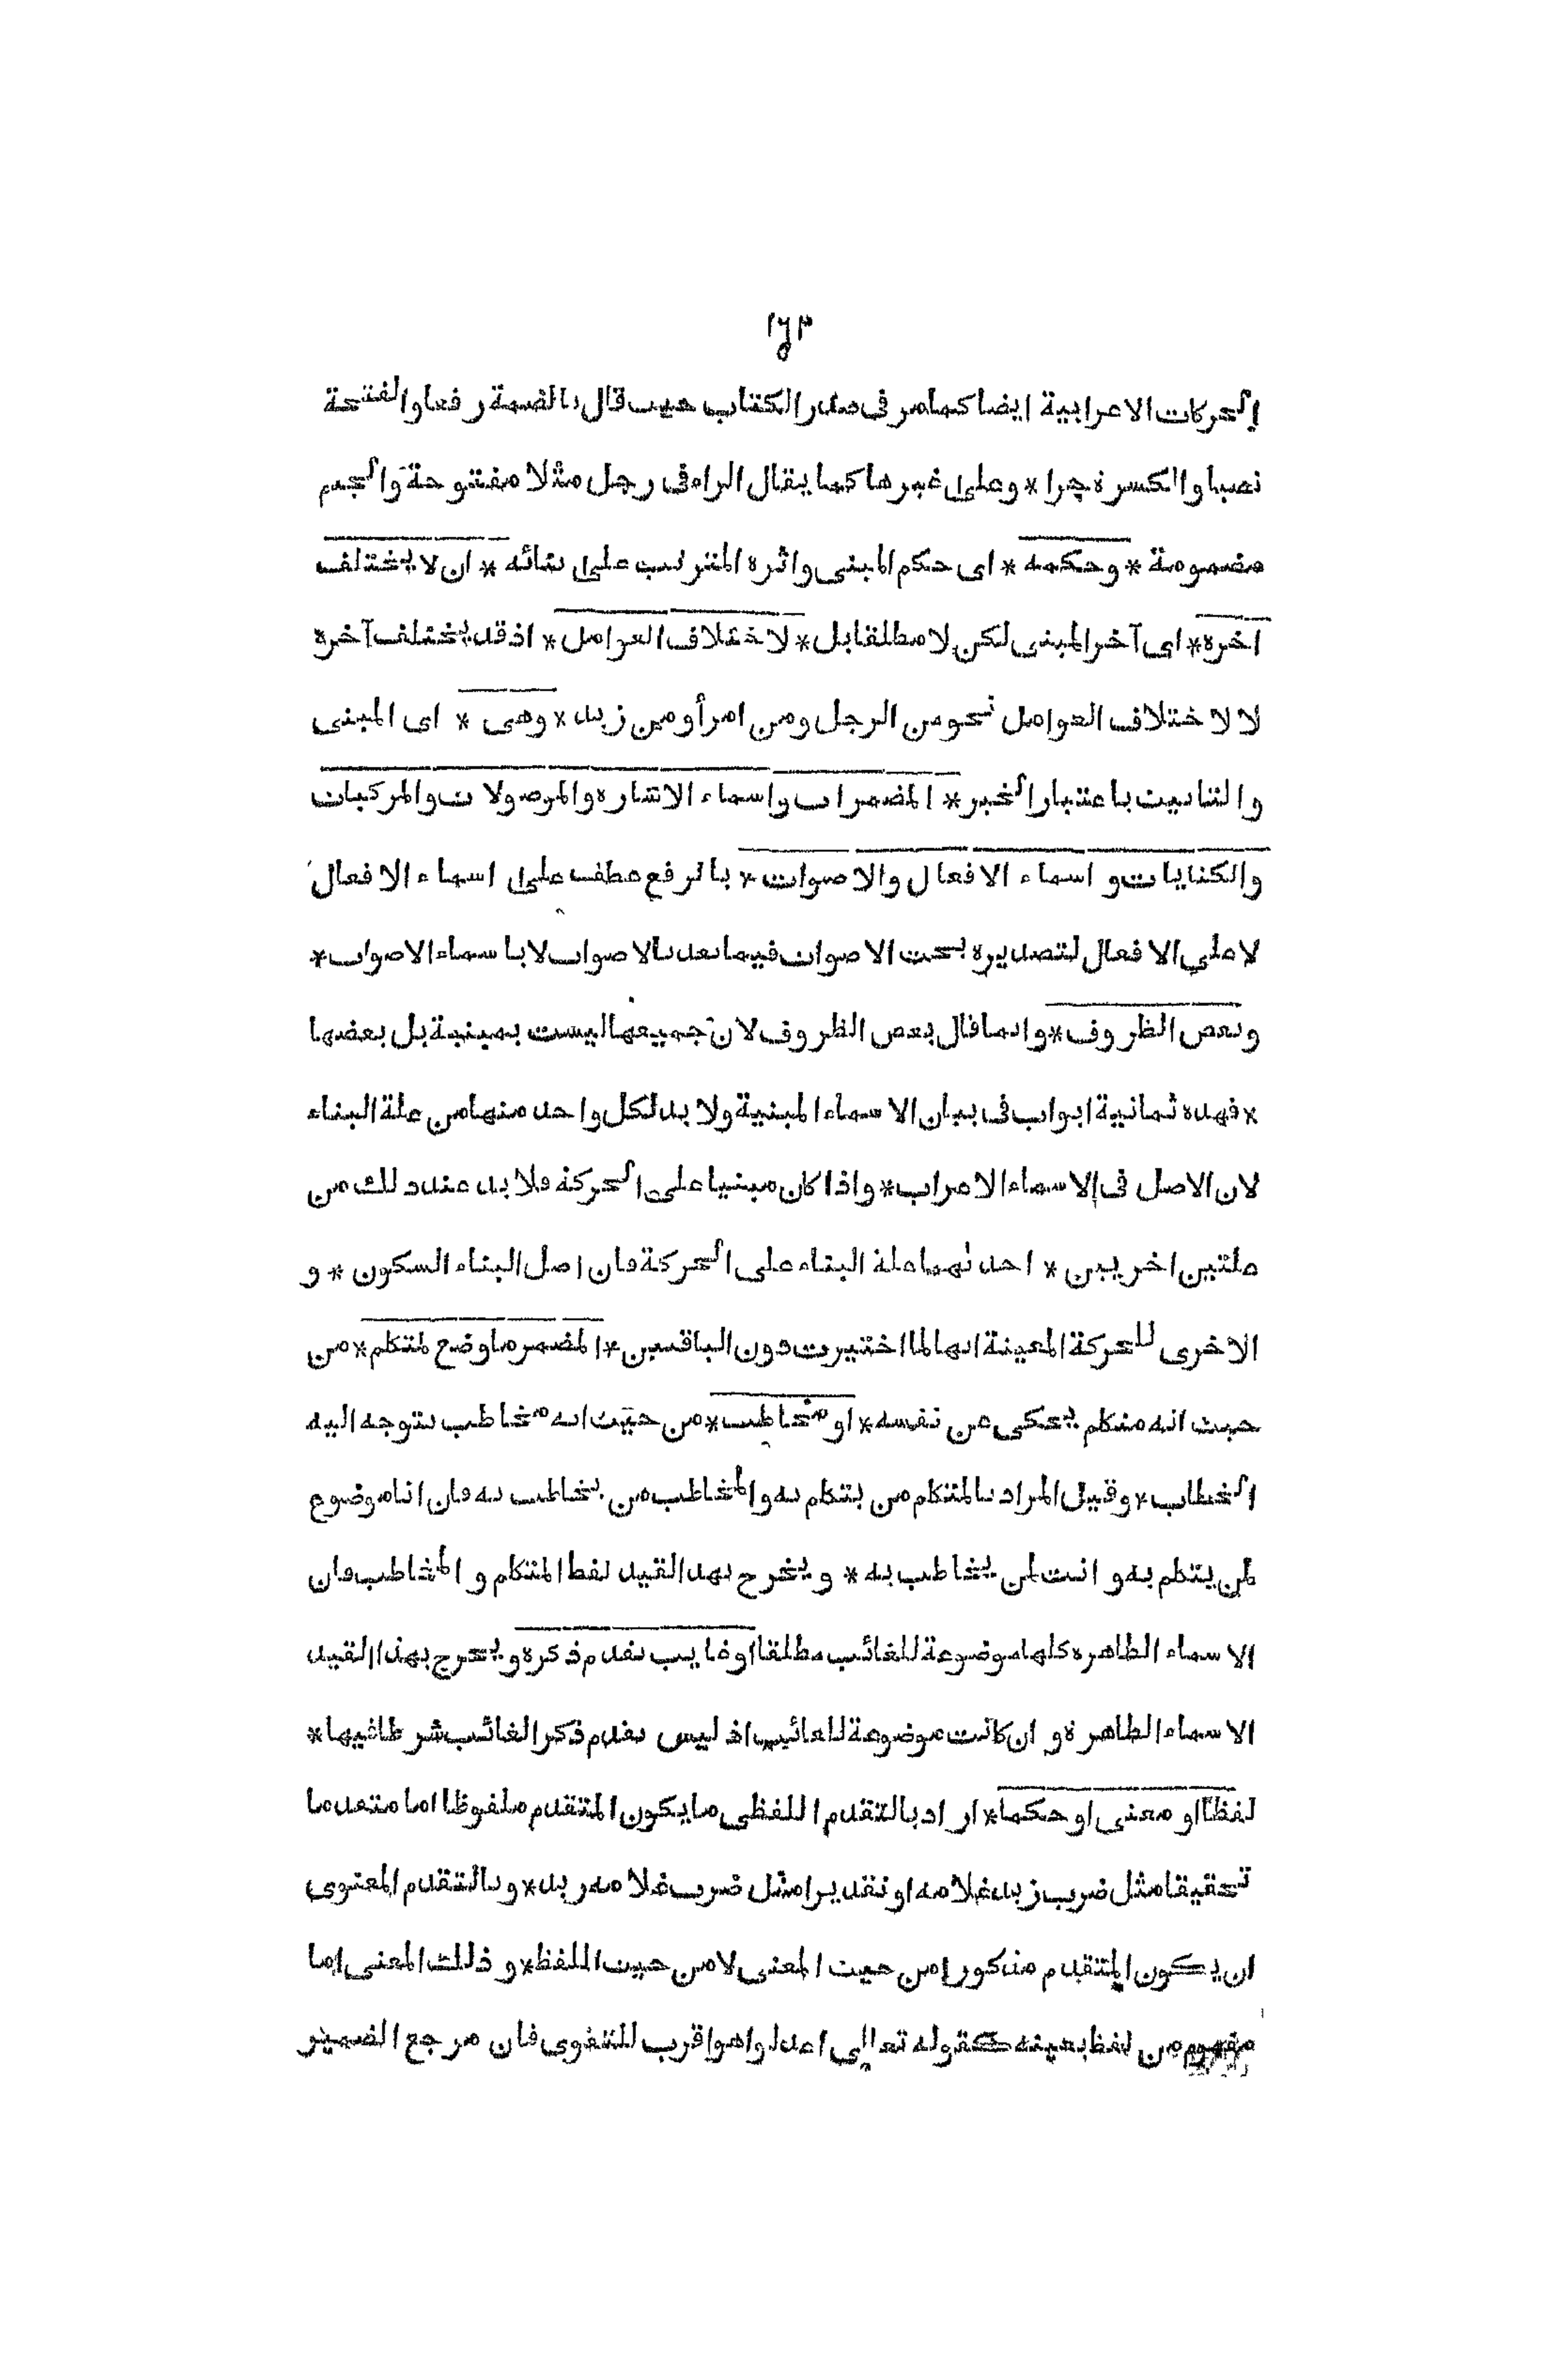 ١٤٣
الحركات الاعرابية ايضا كما مر فى صدر الكتاب حيث قال بالضمة رفعا والفتحة
نصبا والكسرة جرا * وعلى غيرها كما يقال الراء فى رجل مثلا مفتوحة والجيم
مضمومة * وحكمه * اى حكم المبنى واثره المترتب على بنائه * ان لا يختلف
اخره * اى آخر المبنى لكن لا مطلقا بل * لاختلاف العوامل * اذ قد يختلف آخره
لا لاختلاف العوامل نحو من الرجل ومن امرأ ومن زيد * وهى * اى المبنى
والتانيث باعتبار الخبر * المضمرات واسماء الاشارة والموصولات والمركبات
والكنايات واسماء الافعال والاصوات * بالرفع عطف على اسماء الافعال
لا على الافعال لتصديره بحث الاصوات فيما بعد بالاصوات لا باسماء الاصوات *
وبعض الظروف * وانما قال بعض الظروف لان جميعها ليست بمبنية بل بعضها
* فهذه ثمانية ابواب فى بيان الاسماء المبنية ولا بد لكل واحد منها من علة البناء
لان الاصل فى الاسماء الاعراب * واذا كان مبنيا على الحركة فلا بد عند ذلك من
علتين اخريين * احدٰهما علة البناء على الحركة فان اصل البناء السكون * و
الاخرى للحركة المعينة انها لما اختيرت دون الباقيين * المضمر ما وضع لمتكلم * من
حيث انه متكلم يحكى عن نفسه * او مخاطب * من حيث انه مخاطب يتوجه اليه
الخطاب * وقيل المراد بالمتكلم من يتكلم به والمخاطب من يخاطب به فان انا موضوع
لمن يتكلم به و انت لمن يخاطب به * ويخرج بهذا القيد لفظ المتكلم و المخاطب فان
الاسماء الظاهرة كلها موضوعة للغائب مطلقا او غايب تقدم ذكره ويخرج بهذا القيد
الاسماء الظاهرة و ان كانت موضوعة للغائب اذ ليس تقدم ذكر الغائب شرطا فيها *
لفظا او معنى او حكما * اراد بالتقدم اللفظى ما يكون المتقدم ملفوظا اما متقدما
تحقيقا مثل ضرب زيد غلامه او تقديرا مثل ضرب غلامه زيد * وبالتقدم المعنوى
ان يكون المتقدم مذكورا من حيث المعنى لا من حيث اللفظ * و ذلك المعنى اما
مفهوم من لفظ بعينه كقوله تعالى اعدلوا هو اقرب للتقوى فان مرجع الضمير